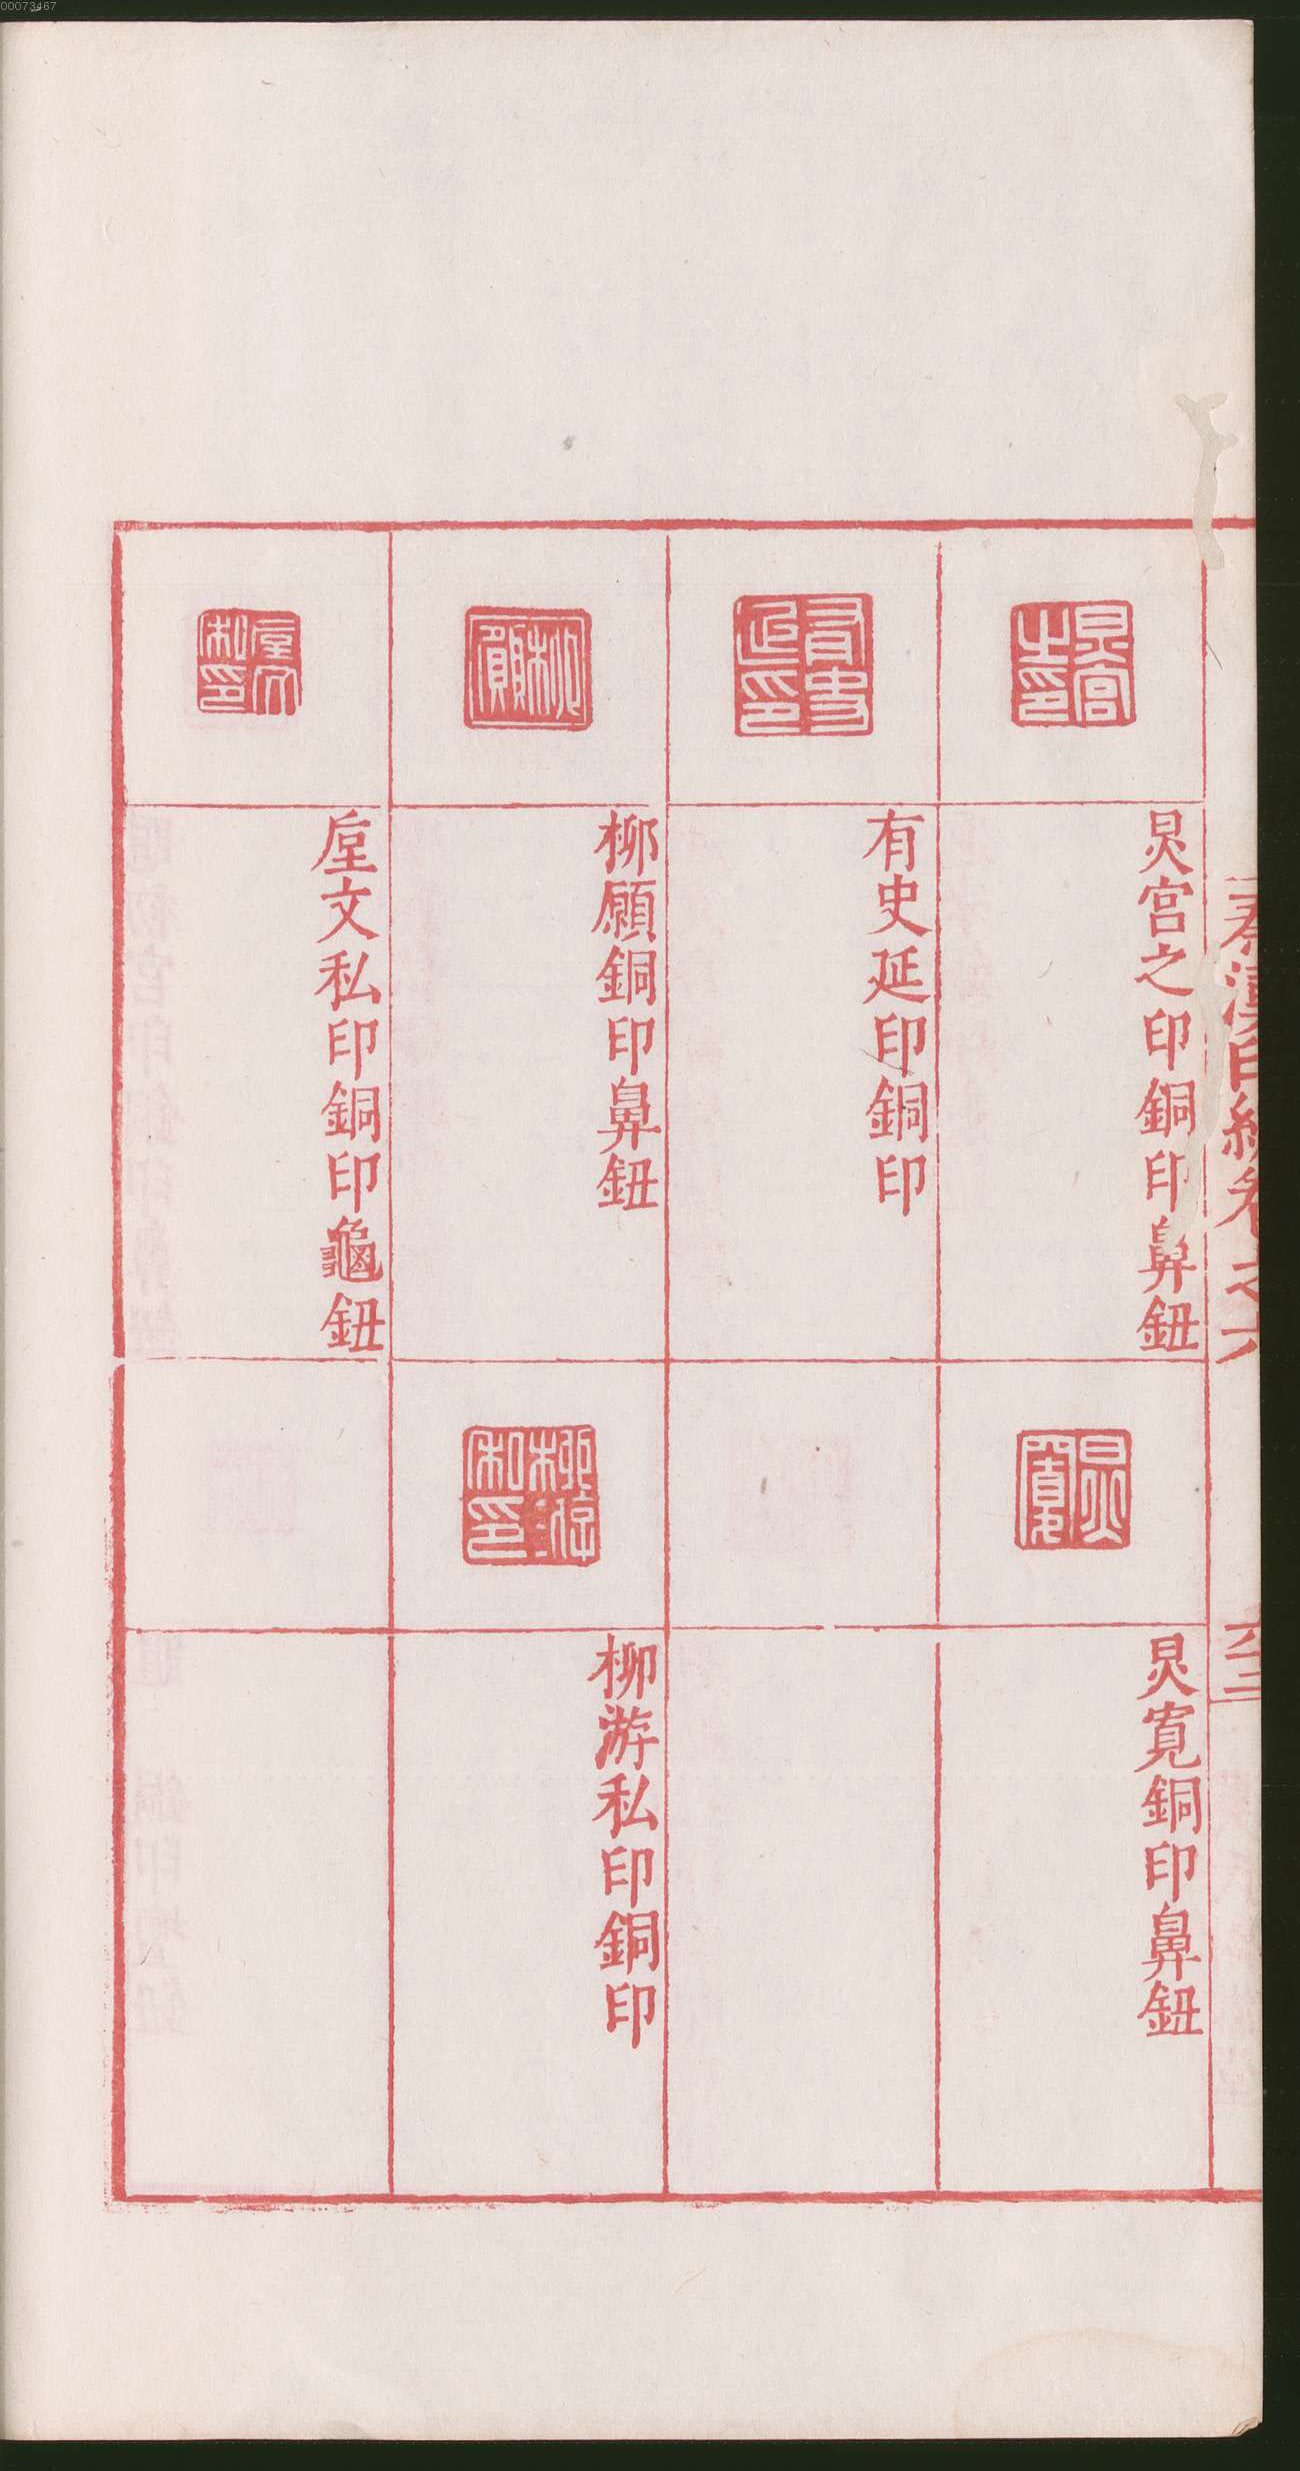 秦漢印統卷之六
六十二
炅宮之印銅印鼻鈕
炅寬銅印鼻鈕
有史延印銅印
柳願銅印鼻鈕
柳游私印銅印
垕文私印銅印龜鈕
00073467